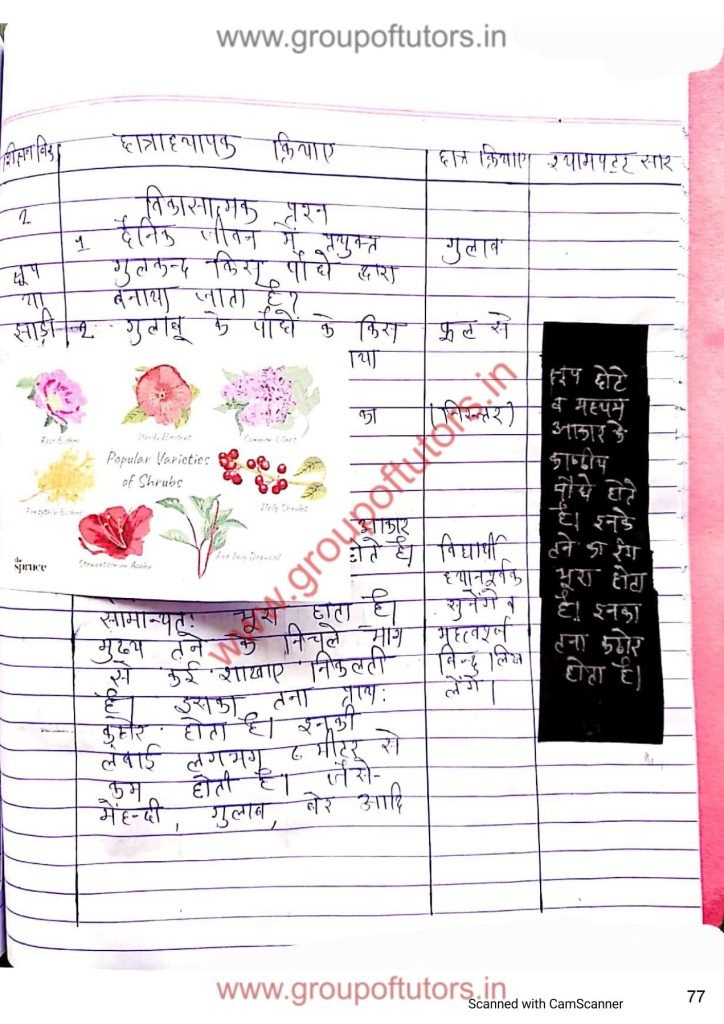 www.groupoftutors.in
शिक्षण बिंदु छात्राध्यापक क्रियाए छात्र क्रियाए श्यामपट्ट सार
2 विकासात्मक प्रश्न
1 दैनिक जीवन में प्रयुक्त गुलाब
क्षुप गुलकन्द किस पौधे द्वारा
या बनाया जाता है?
झाड़ी 2 गुलाब के पौधे के किस फूल से
ाया
का (निरुत्तर)
Rose Bushes
Hardy Hibiscus
Common Lilacs
Popular Varieties
of Shrubs
Forsythia Bushes
Holly Shrubs
the spruce
आकार
होते है। विद्यार्थी
ध्यानपूर्वक
सामान्यतः भूरा होता है। सुनेंगे व
मुख्य तने के निचले भाग महत्वपूर्ण
से कई शाखाए निकलती बिन्दु लिख
है। इसका तना प्रायः लेंगे।
कठोर होता है। इनकी
लंबाई लगभग 6 मीटर से
कम होती है। जैसे-
मेंहन्दी, गुलाब, बेर आदि
क्षुप छोटे
व मध्यम
आकार के
काष्ठीय
पौधे होते
है। इनके
तने का रंग
भूरा होता
है। इनका
तना कठोर
होता है।
www.groupoftutors.in
www.groupoftutors.in
Scanned with CamScanner
77